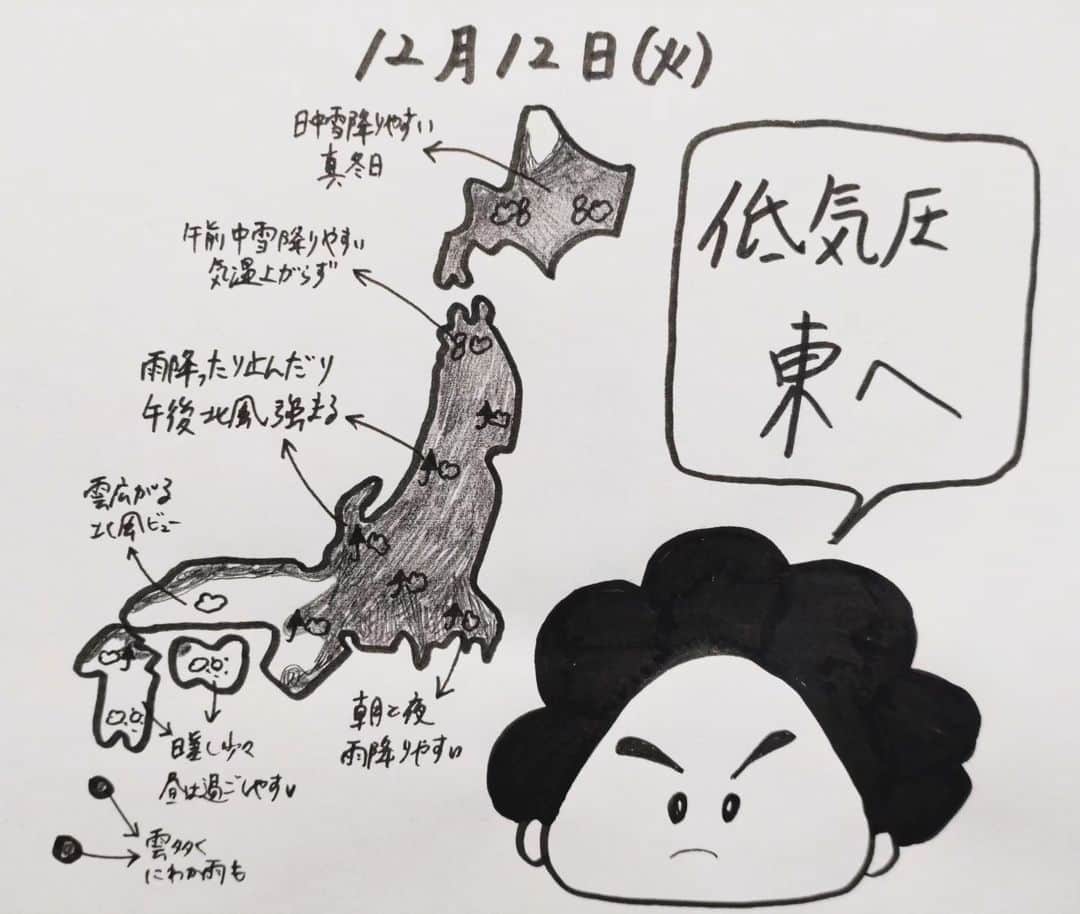 12月12日(火)
日中雪降りやすい
真冬日
低気圧
東へ
午前中雪降りやすい
気温上がらず
雨降ったり止んだり
午後北風強まる
雲広がる
北風ビュー
朝と夜
雨降りやすい
日差し少々
昼は過ごしやすい
雲多く
にわか雨も